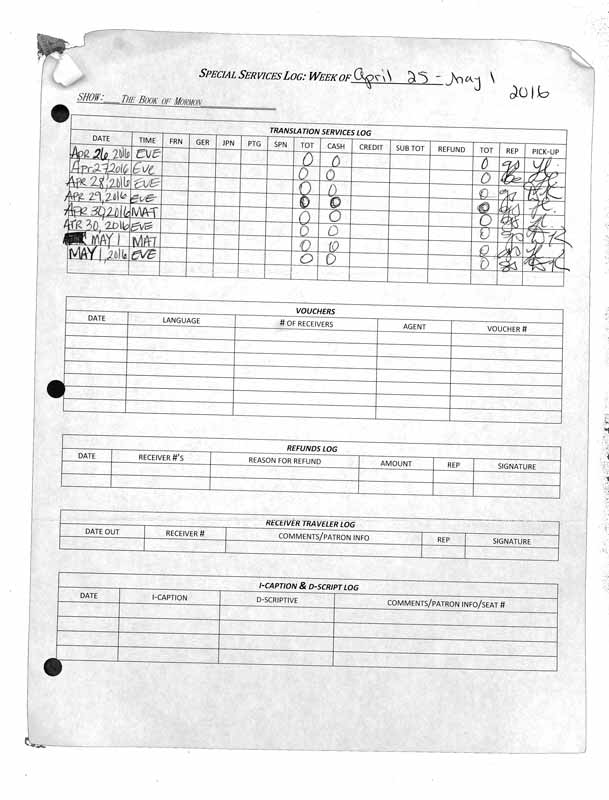 SPECIAL SERVICES LOG: WEEK OF April 25 - May 1
2016
SHOW: THE BOOK OF MORMON
TRANSLATION SERVICES LOG
DATE TIME FRN GER JPN PTG SPN TOT CASH CREDIT SUB TOT REFUND TOT REP PICK-UP
APR 26, 2016 EVE 0 0 0
APR 27 2016 EVE 0 0 0
APR 28, 2016 EVE 0 0 0
APR 29, 2016 EVE 0 0 0
APR 30, 2016 MAT 0 0 0
APR 30, 2016 EVE 0 0 0
MAY 1 MAT 0 0 0
MAY 1, 2016 EVE 0 0 0
VOUCHERS
DATE LANGUAGE # OF RECEIVERS AGENT VOUCHER #
REFUNDS LOG
DATE RECEIVER #'S REASON FOR REFUND AMOUNT REP SIGNATURE
RECEIVER TRAVELER LOG
DATE OUT RECEIVER # COMMENTS/PATRON INFO REP SIGNATURE
I-CAPTION & D-SCRIPT LOG
DATE I-CAPTION D-SCRIPTIVE COMMENTS/PATRON INFO/SEAT #